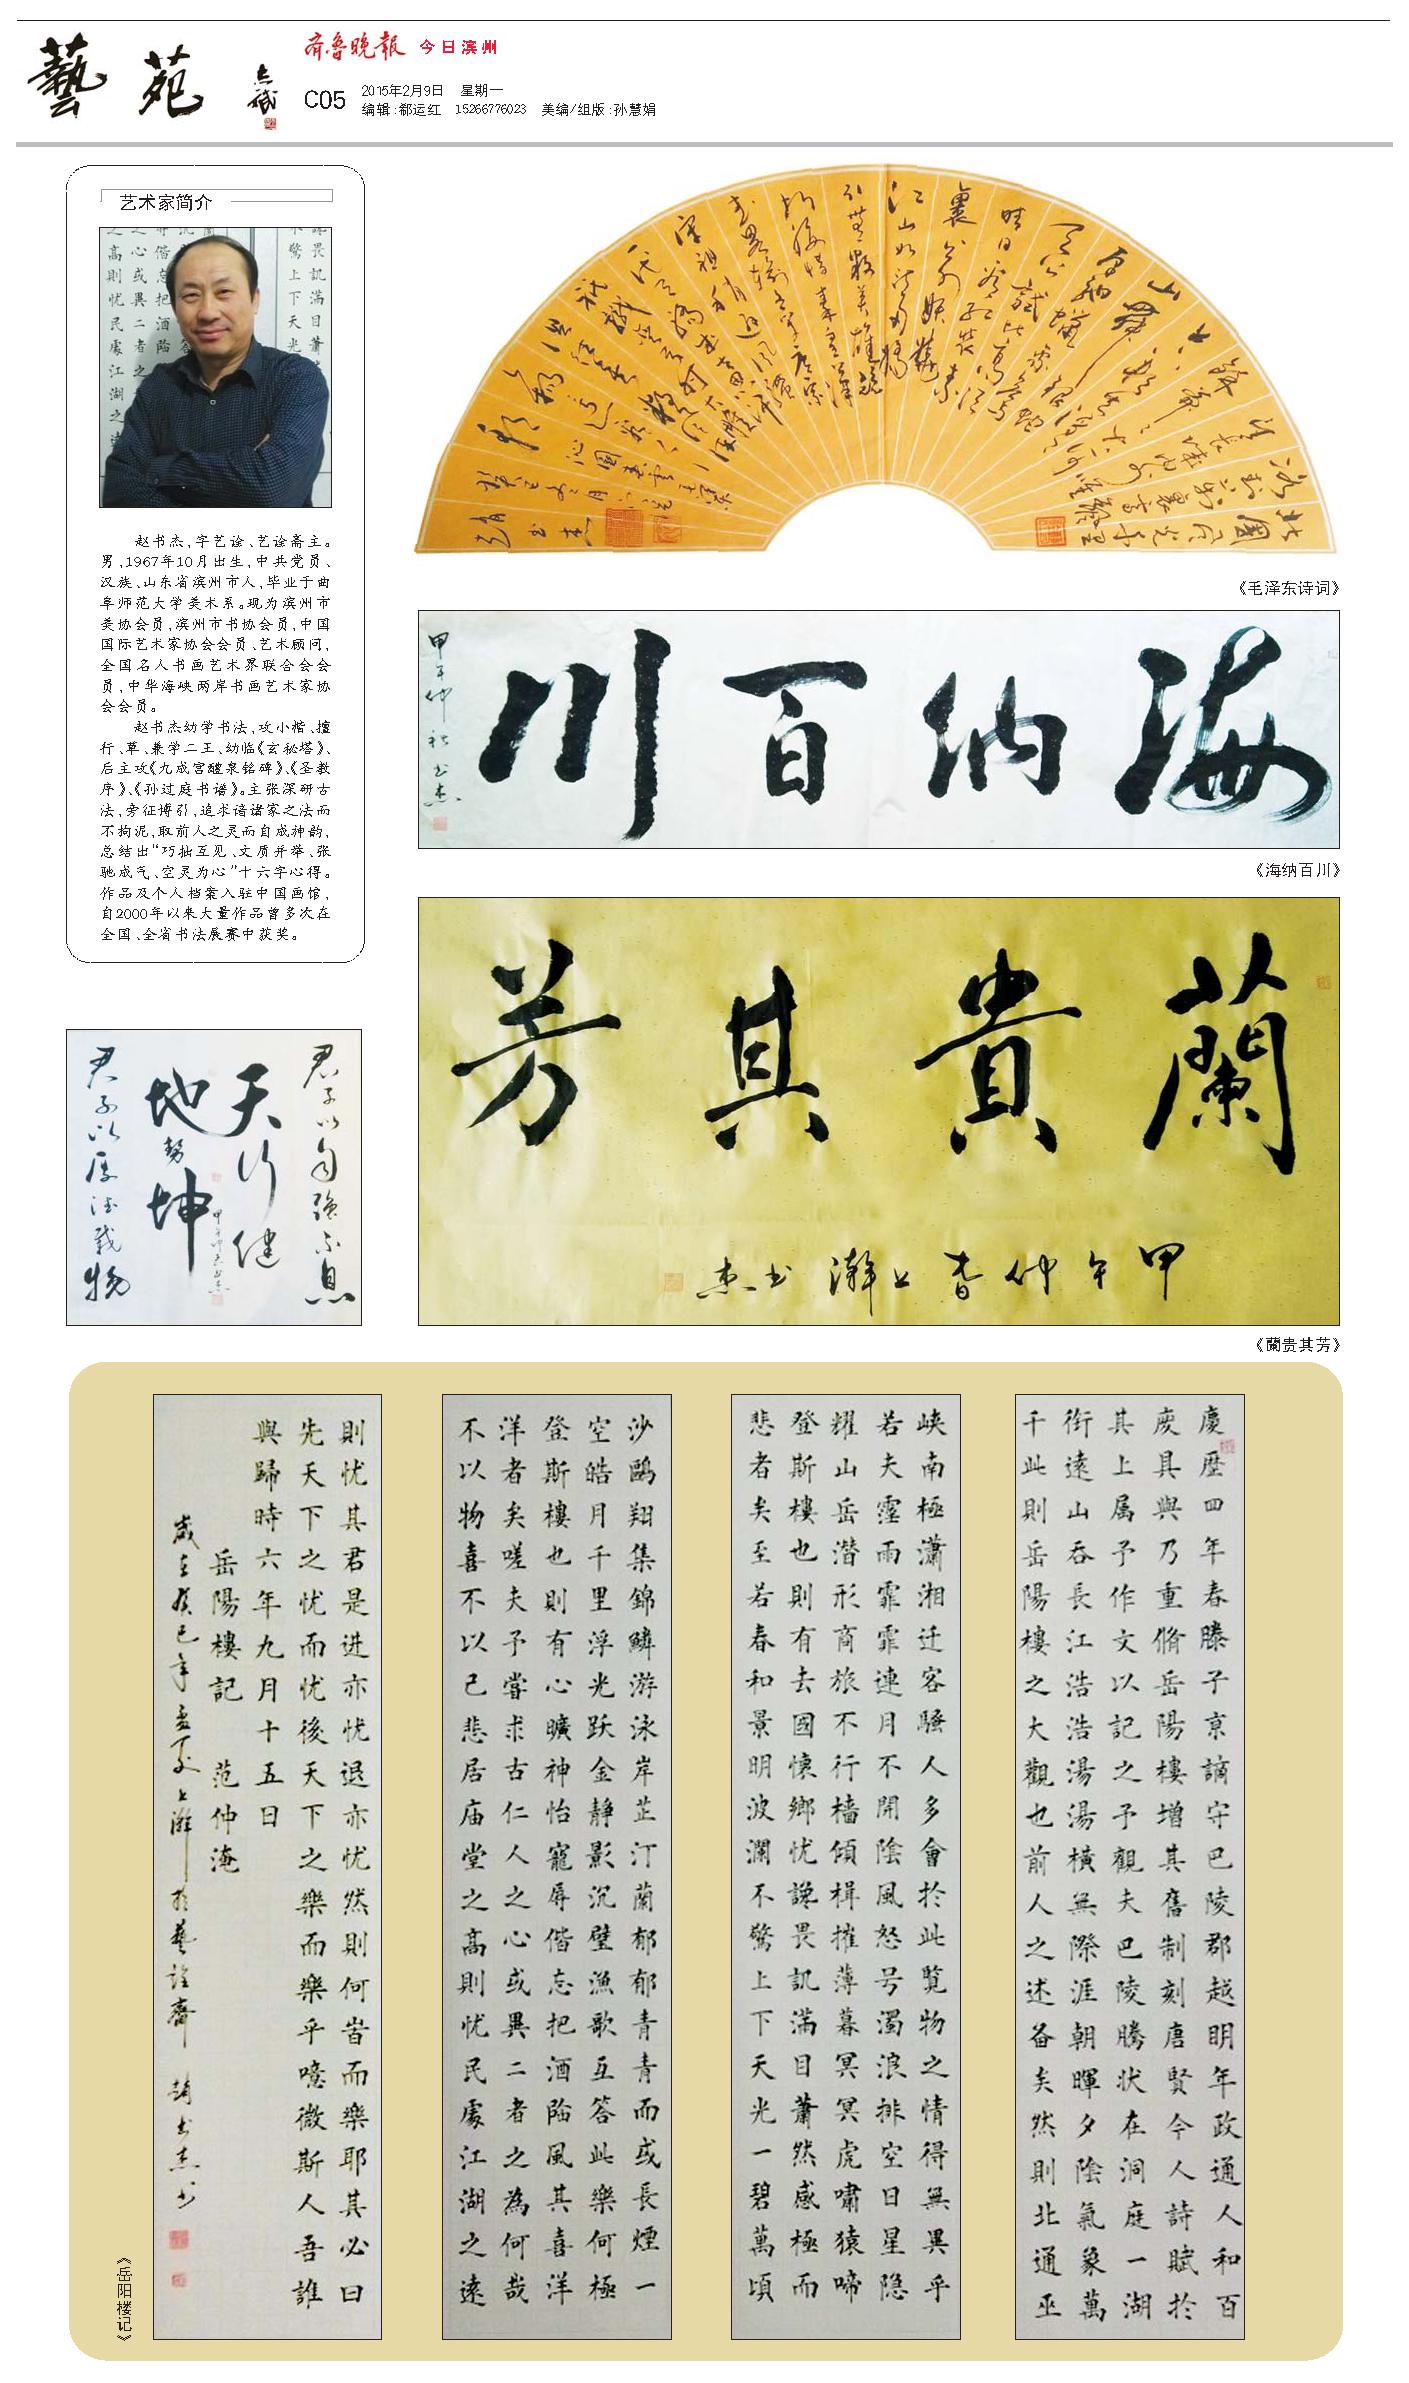 藝苑
齐鲁晚报 今日滨州
C05
2015年2月9日 星期一
编辑:郗运红 15266776023 美编/组版:孙慧娟
艺术家简介
赵书杰,字艺诠、艺诠斋主。
男,1967年10月出生,中共党员、
汉族、山东省滨州市人,毕业于曲
阜师范大学美术系。现为滨州市
美协会员,滨州市书协会员,中国
国际艺术家协会会员、艺术顾问,
全国名人书画艺术界联合会会
员,中华海峡两岸书画艺术家协
会会员。
赵书杰幼学书法,攻小楷、擅
行、草、兼学二王、幼临《玄秘塔》、
后主攻《九成宫醴泉铭碑》、《圣教
序》、《孙过庭书谱》。主张深研古
法,旁征博引,追求谙诸家之法而
不拘泥,取前人之灵而自成神韵,
总结出“巧拙互见、文质并举、张
驰成气、空灵为心”十六字心得。
作品及个人档案入驻中国画馆,
自2000年以来大量作品曾多次在
全国、全省书法展赛中获奖。
《毛泽东诗词》
海纳百川
甲午仲秋书杰
《海纳百川》
蘭貴其芳
甲午仲春上澣书杰
《蘭贵其芳》
君子以自强不息
天行健
地势坤
君子以厚德载物
慶歷四年春滕子京謫守巴陵郡越明年政通人和百
廢具興乃重脩岳陽樓增其舊制刻唐賢今人詩賦於
其上属予作文以記之予觀夫巴陵勝状在洞庭一湖
銜遠山吞長江浩浩湯湯橫無際涯朝暉夕陰氣象萬
千此則岳陽樓之大觀也前人之述备矣然則北通巫
峽南極瀟湘迁客騷人多會於此覽物之情得無異乎
若夫霪雨霏霏連月不開陰風怒号濁浪排空日星隐
耀山岳潜形商旅不行檣傾楫摧薄暮冥冥虎嘯猿啼
登斯樓也則有去國懷鄉忧讒畏訊滿目蕭然感極而
悲者矣至若春和景明波瀾不驚上下天光一碧萬頃
沙鷗翔集錦鱗游泳岸芷汀蘭郁郁青青而或長煙一
空皓月千里浮光跃金静影沉璧漁歌互答此樂何極
登斯樓也則有心曠神怡寵辱偕忘把酒臨風其喜洋
洋者矣嗟夫予嘗求古仁人之心或異二者之為何哉
不以物喜不以己悲居庙堂之高則忧民處江湖之遠
則忧其君是进亦忧退亦忧然則何峕而樂耶其必曰
先天下之忧而忧後天下之樂而樂乎噫微斯人吾誰
與歸時六年九月十五日
岳陽樓記 范仲淹
歲在癸巳年孟夏上澣於藝詮齋 趙书杰书
《岳阳楼记》